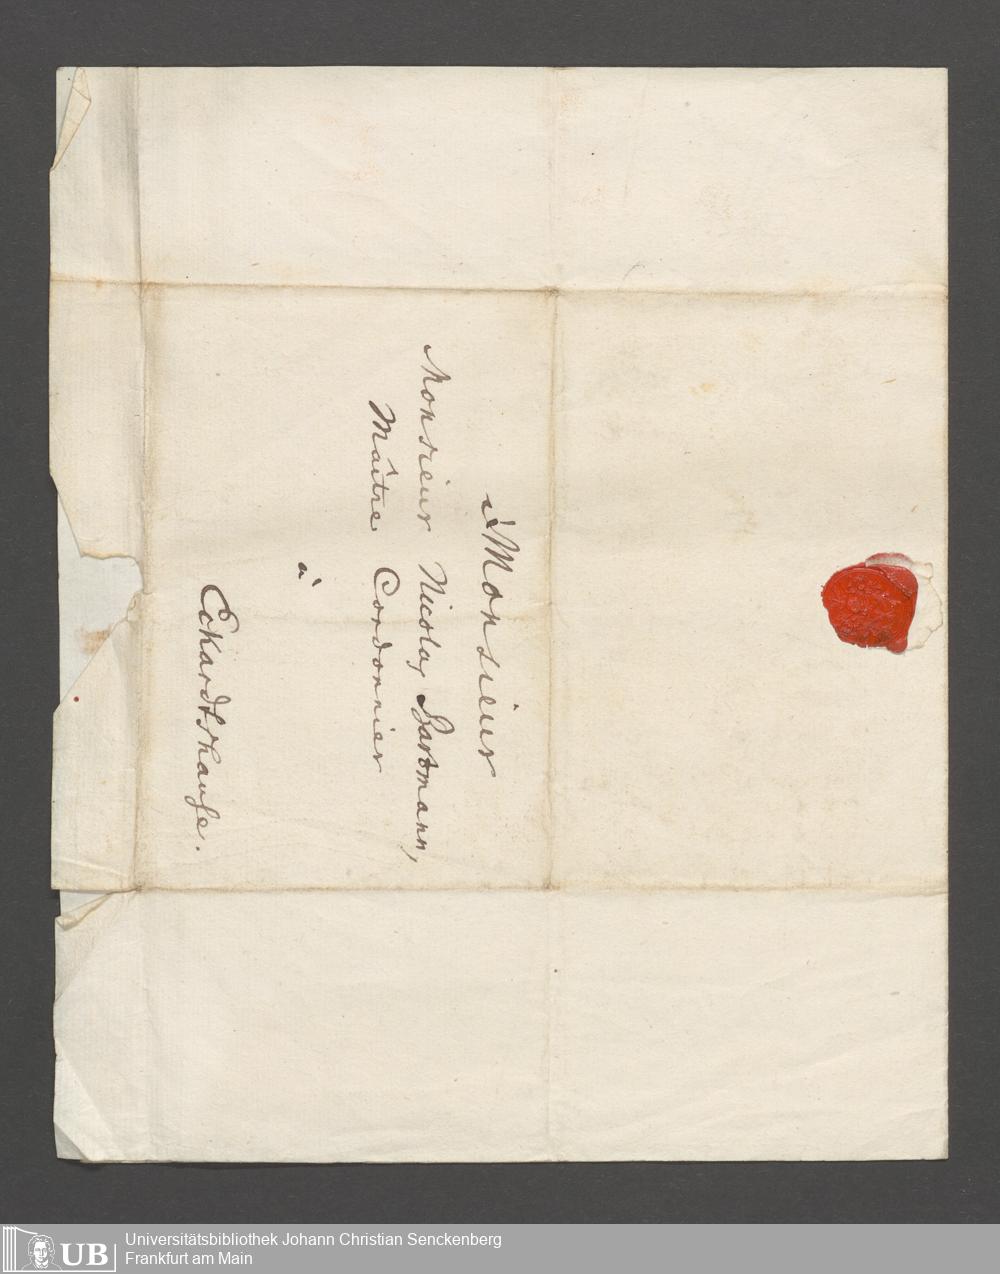 à Monsieur
Monsieur Nicolay Hartmann,
Maitre Cordonnier
à
Eckardtshause.
UB
Universitätsbibliothek Johann Christian Senckenberg
Frankfurt am Main